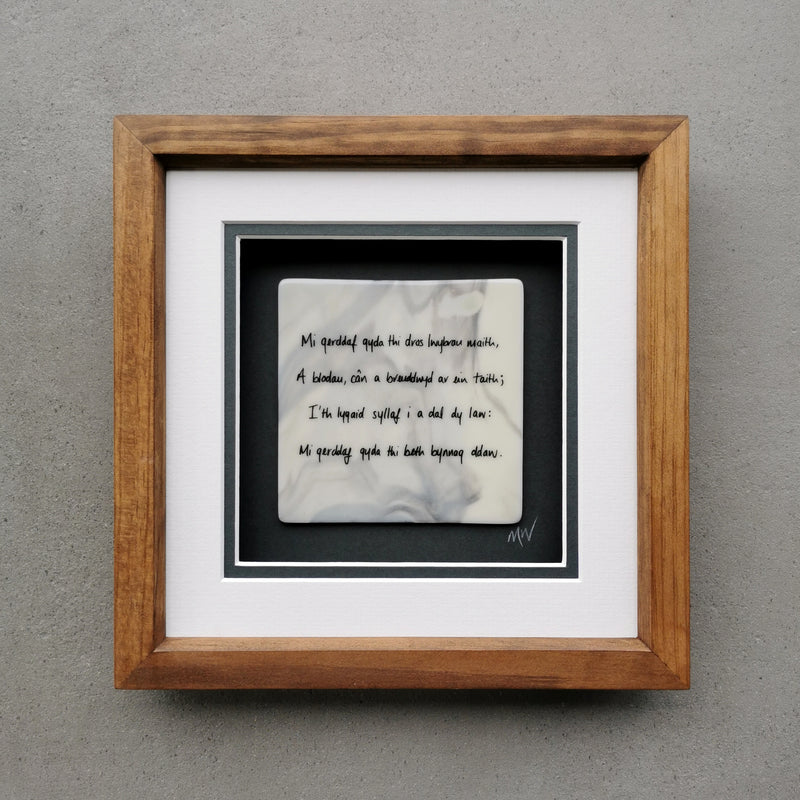 Mi gerddaf gyda thi dros lwybrau maith,
A blodau, cân a breuddwyd ar ein taith;
I'th lygaid syllaf i a dal dy law:
Mi gerddaf gyda thi beth bynnag ddaw.
MW